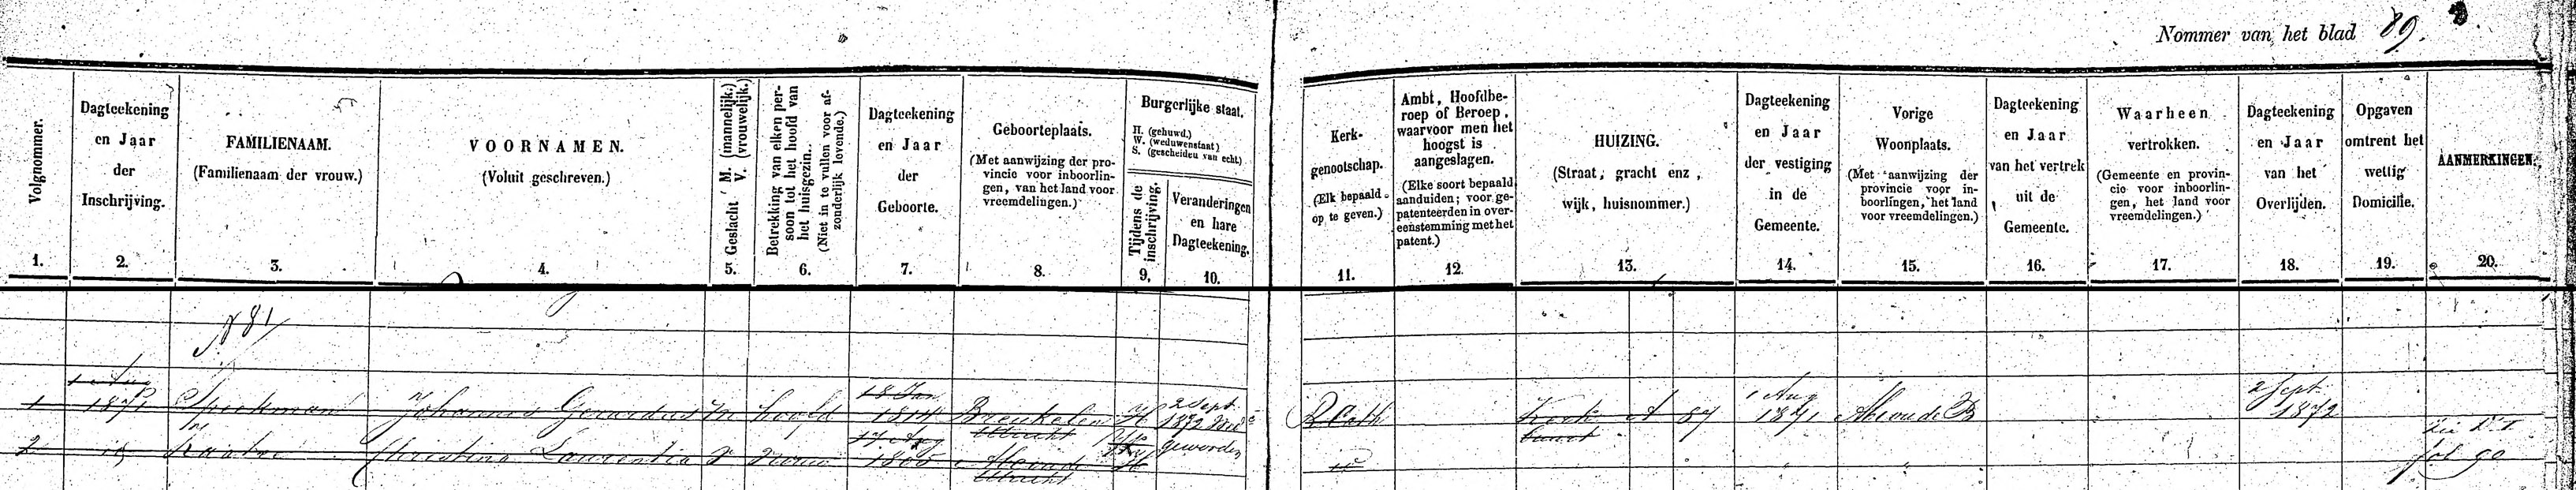 Nommer van het blad 89.
Volgnommer.
1.
Dagteekening
en Jaar
der
Inschrijving.
2.
FAMILIENAAM.
(Familienaam der vrouw.)
3.
VOORNAMEN.
(Voluit geschreven.)
4.
Geslacht M. (mannelijk.)
V. (vrouwelijk.)
5.
Betrekking van elken per-
soon tot het hoofd van
het huisgezin..
(Niet in te vullen voor af-
zonderlijk levende.)
6.
Dagteekening
en Jaar
der
Geboorte.
7.
Geboorteplaats.
(Met aanwijzing der pro-
vincie voor inboorlin-
gen, van het land voor
vreemdelingen.)
8.
Burgerlijke staat.
H. (gehuwd.)
W. (weduwenstaat)
S. (gescheiden van echt)
Tijdens de
inschrijving.
9.
Veranderingen
en hare
Dagteekening.
10.
Kerk-
genootschap.
(Elk bepaald
op te geven.)
11.
Ambt, Hoofdbe-
roep of Beroep,
waarvoor men het
hoogst is
aangeslagen.
(Elke soort bepaald
aanduiden; voor ge-
patenteerden in over-
eenstemming met het
patent.)
12.
HUIZING.
(Straat, gracht enz,
wijk, huisnommer.)
13.
Dagteekening
en Jaar
der vestiging
in de
Gemeente.
14.
Vorige
Woonplaats.
(Met aanwijzing der
provincie voor in-
boorlingen, het land
voor vreemdelingen.)
15.
Dagteekening
en Jaar
van het vertrek
uit de
Gemeente.
16.
Waarheen
vertrokken.
(Gemeente en provin-
cie voor inboorlin-
gen, het land voor
vreemdelingen.)
17.
Dagteekening
en Jaar
van het
Overlijden.
18.
Opgaven
omtrent het
wettig
Domicilie.
19.
AANMERKINGEN.
20.
N 81
1 1 Aug 1871 Spiekman Johannes Gerardus M hoofd 18 Jan 1814 Breukelen Utrecht H 2 Sept 1872 R Cath Kerk A 87 1 Aug 1871 Abcoude B 2 Sept 1872
2 id Christina Laurentia V vrouw 17 Aug Abcoude Utrecht geworden id
fol 90